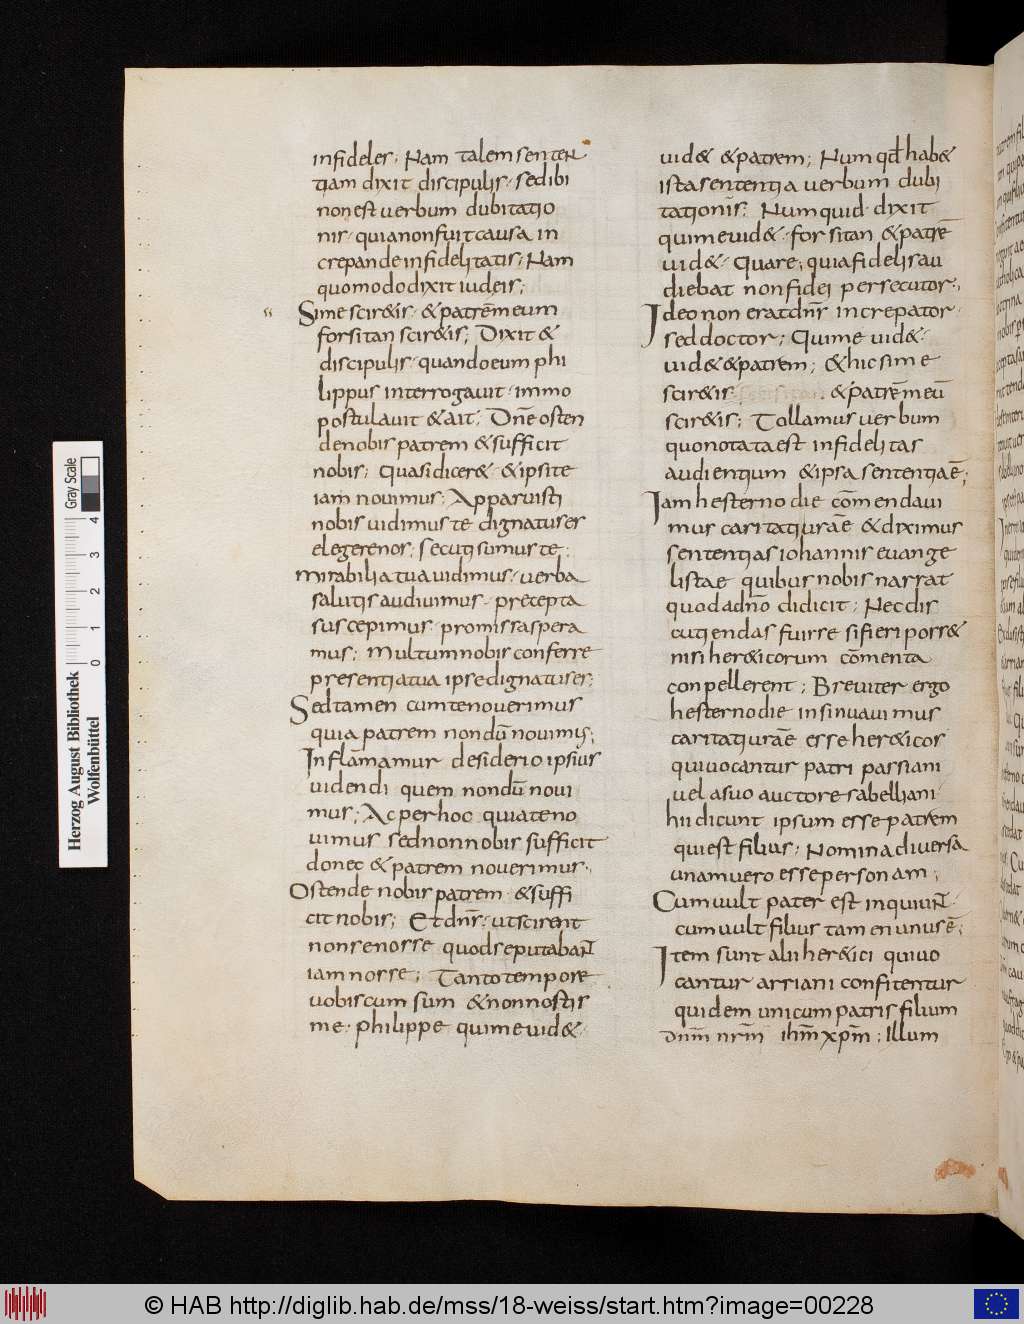 infideles; Nam talem senten
tiam dixit discipulis· sedibi
non est uerbum dubitatio
nis· quia non fuit causa in
crepande infidelitatis; Nam
quomodo dixit iudeis;
Si me scir&is· & patrē meum
forsitan scir&is; Dixit &
discipulis· quando eum phi
lippus interrogauit· immo
postulauit & ait; Dn̄e osten
de nobis patrem & sufficit
nobis; Quasi dicer& & ipsi te
iam nouimus; Apparuisti
nobis uidimus te dignatus es
elegere nos; secuti sumus te;
Mirabilia tua uidimus· uerba
salutis audiuimus· precepta
suscepimus· promissa spera
mus; Multum nobis conferre
presentia tua ipse dignatus es;
Sed tamen cum te nouerimus
quia patrem nondū nouimus;
Inflāmamur desiderio ipsius
uidendi quem nondū noui
mus; Ac per hoc quia te no
uimus sed non nobis sufficit
donec & patrem nouerimus;
Ostende nobis patrem· & suffi
cit nobis; Et dn̄s· ut scirent
non se nosse quod se putabant
iam nosse; Tanto tempore
uobiscum sum & non nostis
me· philippe qui me uid&·
uid& & patrem; Num qđ hab&
ista sententia uerbum dubi
tationis; Numquid dixit
qui me uid&· forsitan & patrē
uid&· Quare; quia fidelis au
diebat non fidei persecutor;
Ideo non erat dn̄s increpator·
sed doctor; Qui me uid&·
uid& & patrem; & hic si me
scir&is· & patrē meū
scir&is; Tollamus uerbum
quo notata est infidelitas
audientium & ipsa sententia ē;
Iam hesterno die cōmendaui
mus caritati uraē & diximus
sententias iohannis euange
listae quibus nobis narrat
quod a dn̄o didicit; Nec dis
cutiendas fuisse si fieri poss&
nisi her&icorum cōmenta
conpellerent; Breuiter ergo
hesterno die insinuauimus
caritati uraē esse her&icos
qui uocantur patripassiani
uel a suo auctore sabelliani·
hii dicunt ipsum esse patrem
qui est filius; Nomina diuersa
unam uero esse personam;
Cum uult pater est inquiunt·
cum uult filius tamen unus ē;
Item sunt alii her&ici qui uo
cantur arriani confitentur
quidem unicum patris filium
dnm̄ nrm̄ ihm̄ xpm̄; Illum
Herzog August Bibliothek
Wolfenbüttel
0 1 2 3 4
Gray Scale
© HAB http://diglib.hab.de/mss/18-weiss/start.htm?image=00228